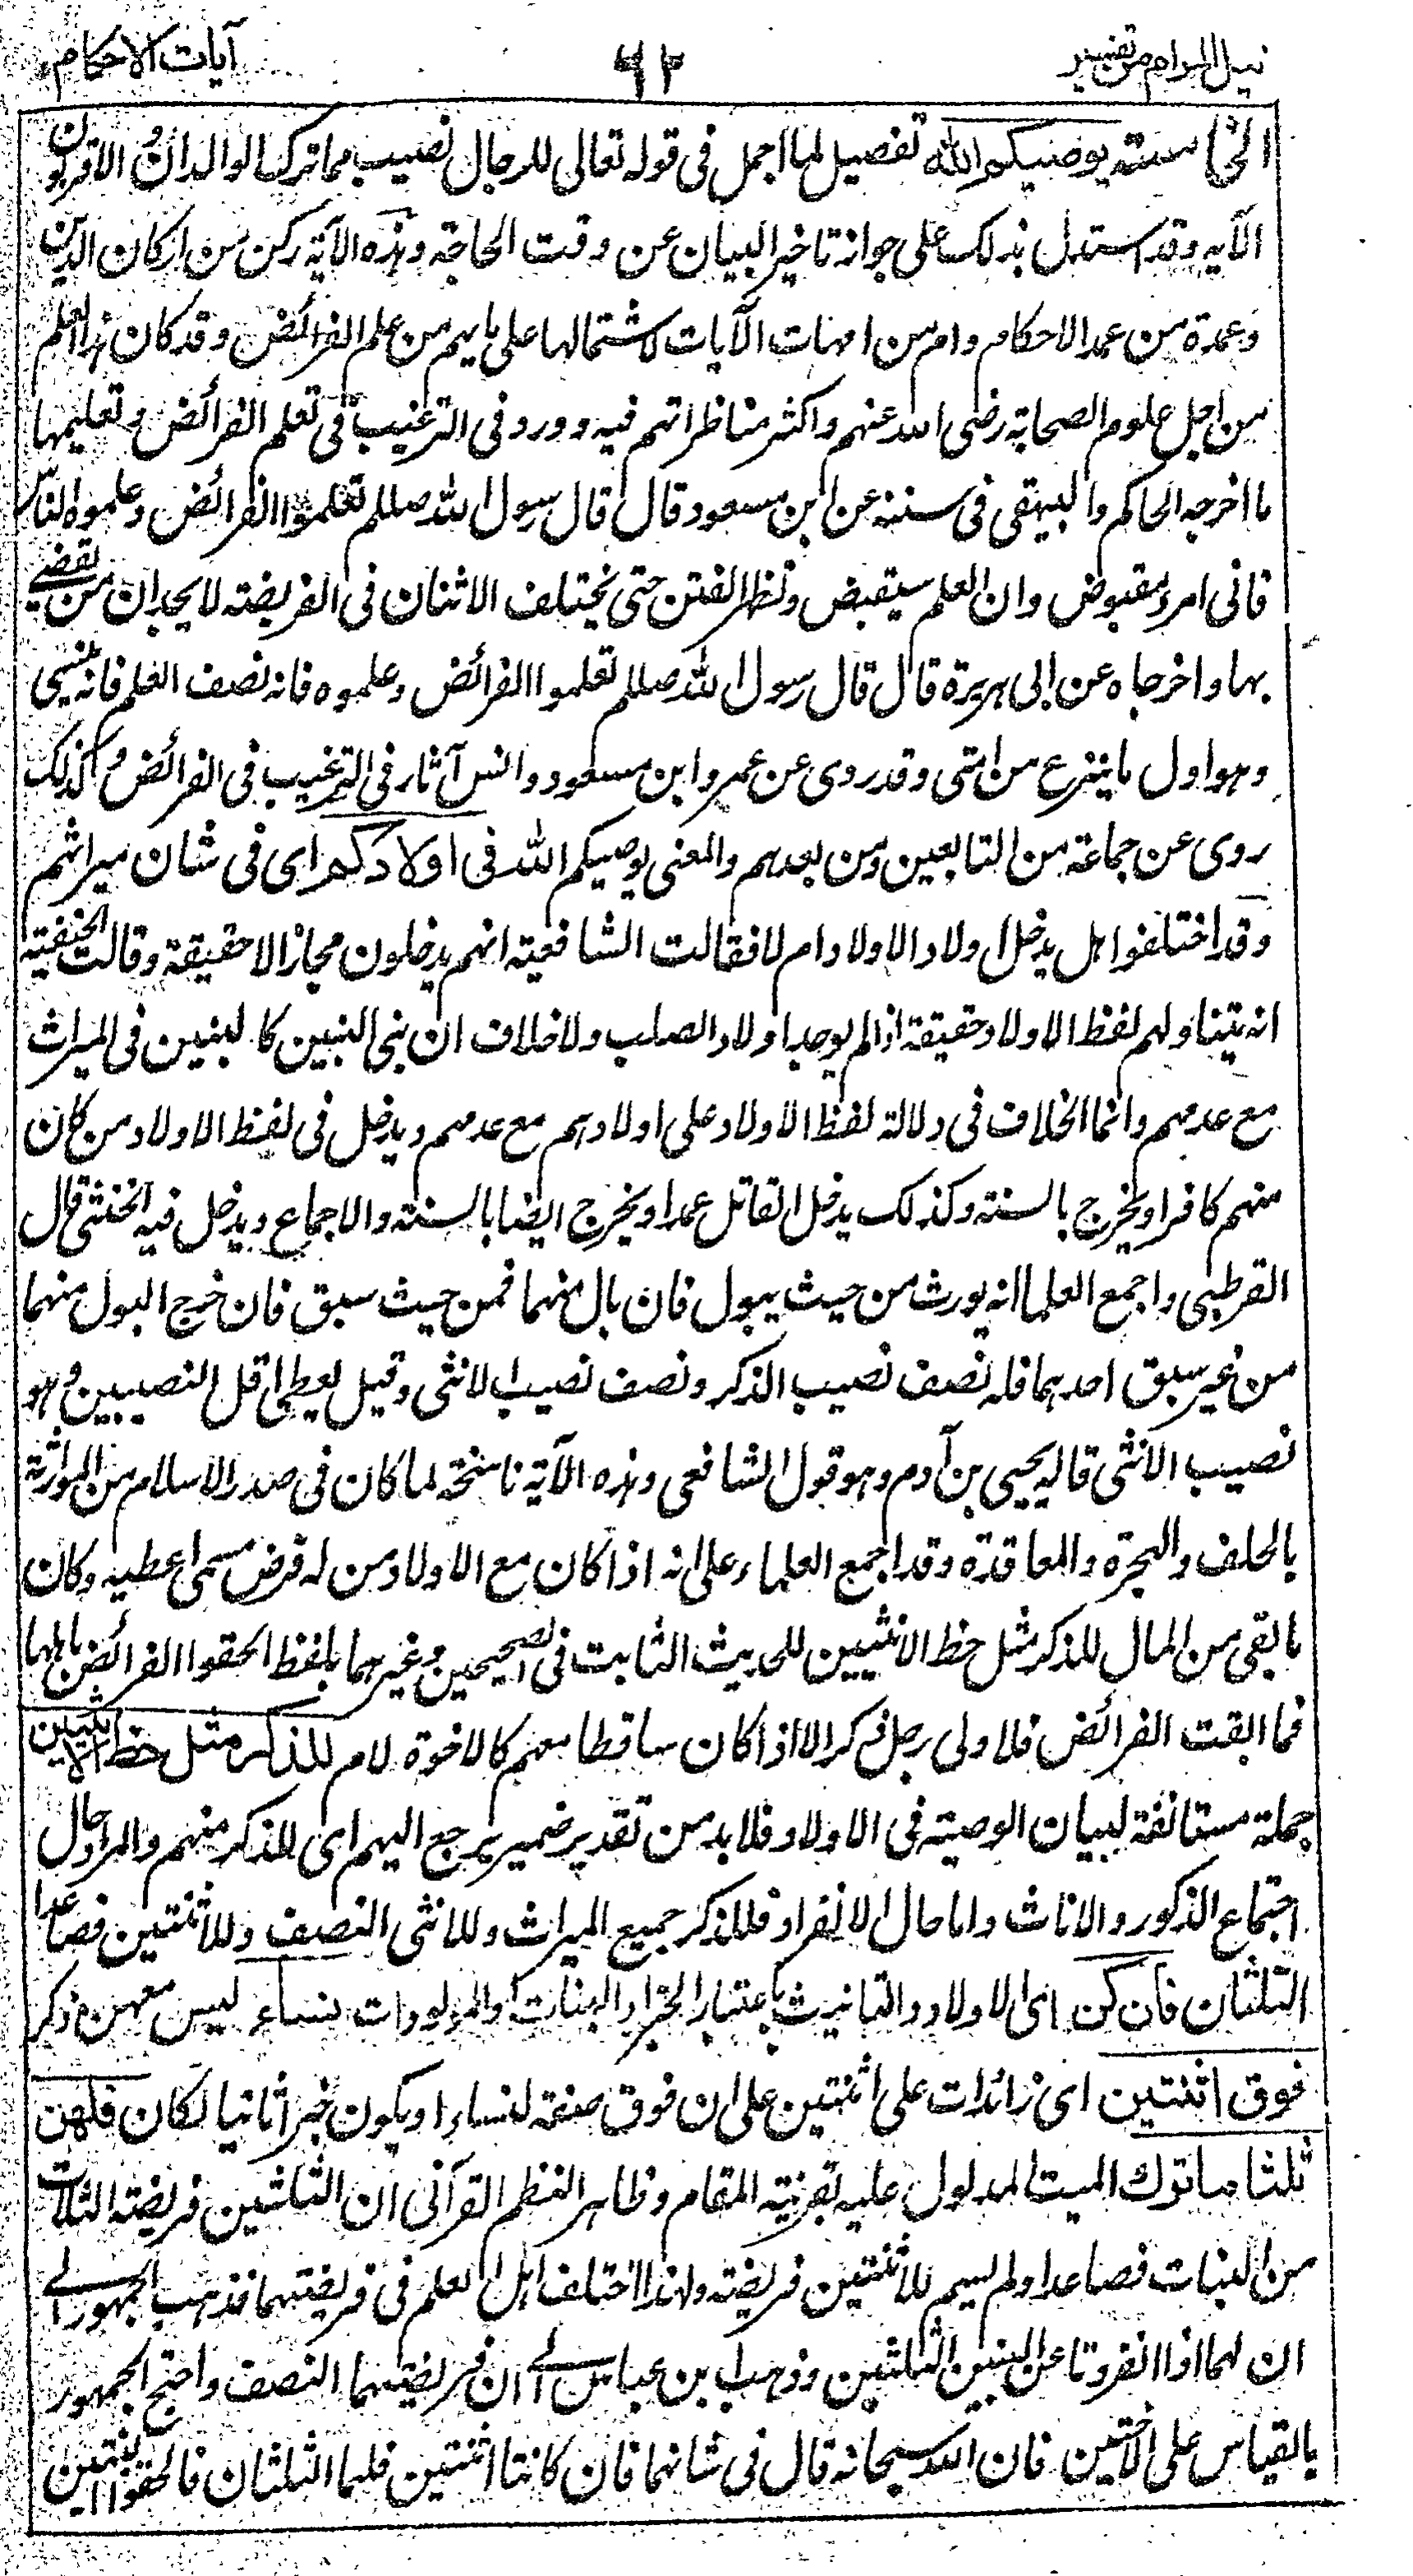 نيل المرام من تفسير
٦٢
آيات الاحكام
الخامسة يوصيكم الله تفصيل لما اجمل فى قوله تعالى للرجال نصيب مما ترك الوالدان والاقربون
الآية وقد استدل بذلك على جواز تاخير البيان عن وقت الحاجة وهذه الآية ركن من اركان الدين
وعمدة من عمد الاحكام وام من امهات الآيات لاشتمالها على ما يهم من علم الفرائض وقد كان هذا العلم
من اجل علوم الصحابة رضى الله عنهم واكثر مناظراتهم فيه وورد فى الترغيب فى تعلم الفرائض وتعليمها
ما اخرجه الحاكم والبيهقى فى سننه عن ابن مسعود قال قال رسول الله صللم تعلموا الفرائض وعلموه الناس
فانى امرء مقبوض وان العلم سيقبض وتظهر الفتن حتى يختلف الاثنان فى الفريضة لا يجدان من يقضے
بها واخرجاه عن ابى هريرة قال قال رسول الله صللم تعلموا الفرائض وعلموه فانه نصف العلم فانه ينسى
وهو اول ما ينزع من امتى وقد روى عن عمر وابن مسعود وانس آثار فى الترغيب فى الفرائض وكذلك
روى عن جماعة من التابعين ومن بعدهم والمعنى يوصيكم الله فى اولادكم اى فى شان ميراثهم
وقد اختلفوا هل يدخل اولاد الاولاد ام لا فقالت الشافعية انهم يدخلون مجازا لا حقيقة وقالت الحنفية
انه يتناولهم لفظ الاولاد حقيقة اذا لم يوجد اولاد الصلب ولا خلاف ان بنى البنين كالبنين فى الميراث
مع عدمهم وانما الخلاف فى دلالة لفظ الاولاد على اولادهم مع عدمهم ويدخل فى لفظ الاولاد من كان
منهم كافرا ويخرج بالسنة وكذلك يدخل القاتل عمدا ويخرج ايضا بالسنة والاجماع ويدخل فيه الخنثى قال
القرطبى واجمع العلما انه يورث من حيث يبول فان بال منهما فمن حيث سبق فان خرج البول منهما
من غير سبق احدهما فله نصف نصيب الذكر ونصف نصيب الانثى وقيل يعطى اقل النصيبين وهو
نصيب الانثى قاله يحيى بن آدم وهو قول الشافعى وهذه الآية ناسخة لما كان فى صدر الاسلام من الموارثة
بالحلف والهجرة والمعاقدة وقد اجمع العلماء على انه اذا كان مع الاولاد من له فرض مسمى اعطيه وكان
ما بقى من المال للذكر مثل حظ الانثيين للحديث الثابت فى الصحيحين وغيرهما بلفظ الحقوا الفرائض باهلها
فما ابقت الفرائض فلاولى رجل ذكر الا اذا كان ساقطا معهم كالاخوة لام للذكر مثل حظ الانثيين
جملة مستانفة لبيان الوصية فى الاولاد فلا بد من تقدير ضمير يرجع اليهم اى للذكر منهم والمراد حال
اجتماع الذكور والاناث واما حال الانفراد فللذكر جميع الميراث وللانثى النصف وللاثنتين فصاعدا
الثلثان فان كن اى الاولاد والتانيث باعتبار الخبر او البنات او المولودات نساء ليس معهن ذكر
فوق اثنتين اى زائدات على اثنتين على ان فوق صفة لنساء او يكون خبرا ثانيا لكان فلهن
ثلثا ما ترك الميت المدلول عليه بقرينة المقام وظاهر النظم القرآنى ان الثلثين فريضة الثلاث
من البنات فصاعدا ولم يسم للاثنتين فريضة ولهذا اختلف اهل العلم فى فريضتهما فذهب الجمهور الے
ان لهما اذا انفردتا عن البنين الثلثين وذهب ابن عباس الے ان فريضتهما النصف واحتج الجمهور
بالقياس على الاختين فان الله سبحانه قال فى شانهما فان كانتا اثنتين فلهما الثلثان فالحقوا البنتين